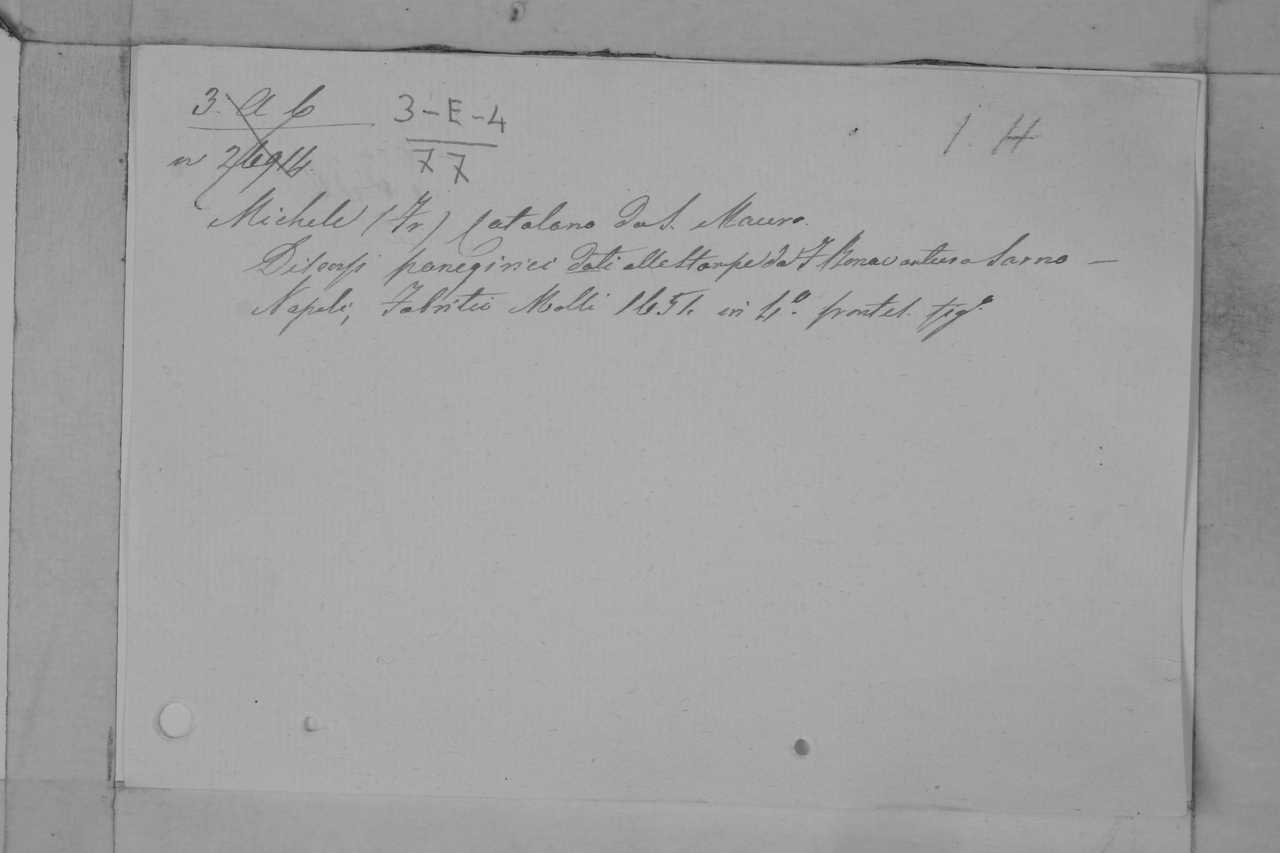 3. A 6 3-E-4 1. H
n 26914. 77
Michele (Fr) Catalano da S. Mauro.
Discorsi panegirici dati alle Stampe da F Bonaventura Sarno —
Napoli, Fabritio Molli 1651. in 4º. frontesp. figº